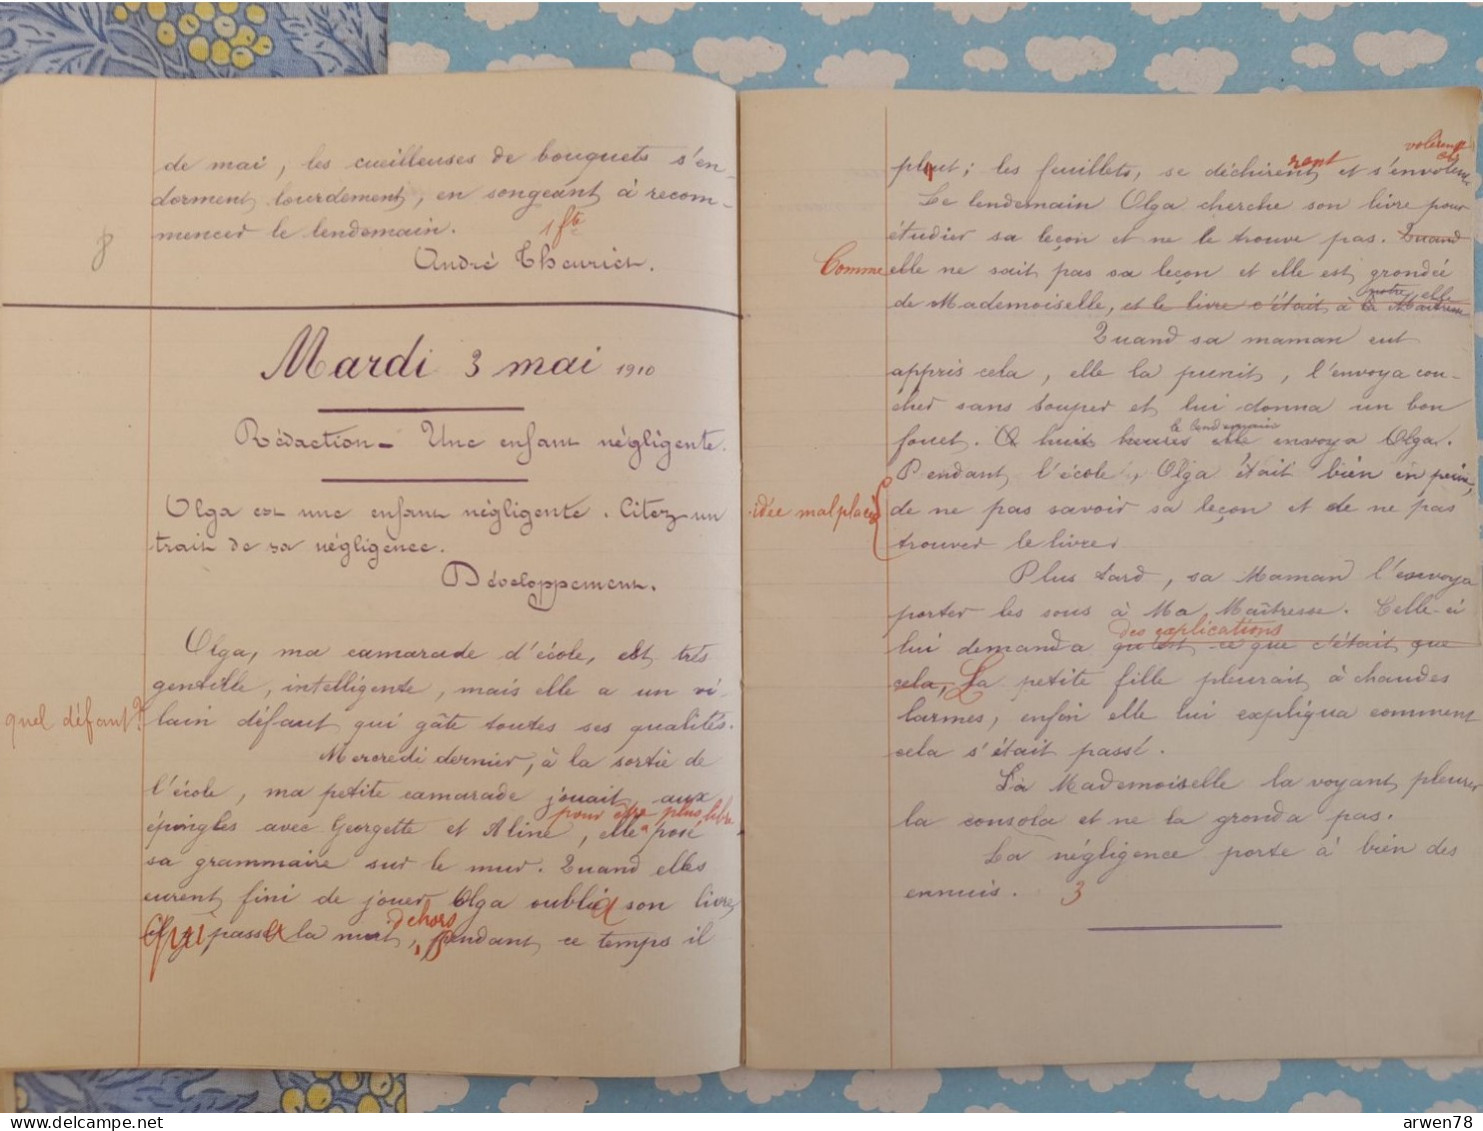 de mai, les cueilleuses de bouquets s'en-
dorment lourdement, en songeant à recom-
mencer le lendemain.
1 fte
André Theuriet.
Mardi 3 mai 1910
Rédaction - Une enfant négligente.
Olga est une enfant négligente. Citez un
trait de sa négligence.
Développement.
Olga, ma camarade d'école, est très
gentille, intelligente, mais elle a un vi-
quel défaut? lain défaut qui gâte toutes ses qualités.
Mercredi dernier, à la sortie de
l'école, ma petite camarade jouait aux
pour être plus libre
épingles avec Georgette et Aline, elle pose
sa grammaire sur le mur. Quand elles
eurent fini de jouer Olga oublia son livre
dehors
qui passa la nuit, Pendant ce temps il
volèrent
rent
plut; les feuillets, se déchirent et s'envolent
Le lendemain Olga cherche son livre pour
étudier sa leçon et ne le trouve pas. Quand
Comme elle ne sait pas sa leçon et elle est grondée
notre elle
de Mademoiselle, et le livre c'était à la Maîtresse
Quand sa maman eut
appris cela, elle la punit, l'envoya cou-
cher sans souper et lui donna un bon
le lendemain
fouet. A huit heures elle envoya Olga.
Pendant l'école, Olga était bien en peine,
idée mal placée de ne pas savoir sa leçon et de ne pas
trouver le livre
Plus tard, sa Maman l'envoya
porter les sous à Ma Maîtresse. Celle-ci
des explications
lui demanda qu'est-ce que c'était que
cela, La petite fille pleurait à chaudes
larmes, enfin elle lui expliqua comment
cela s'était passé.
La Mademoiselle la voyant pleurer
la consola et ne la gronda pas.
La négligence porte à bien des
ennuis. 3
delcampe.net
arwen78